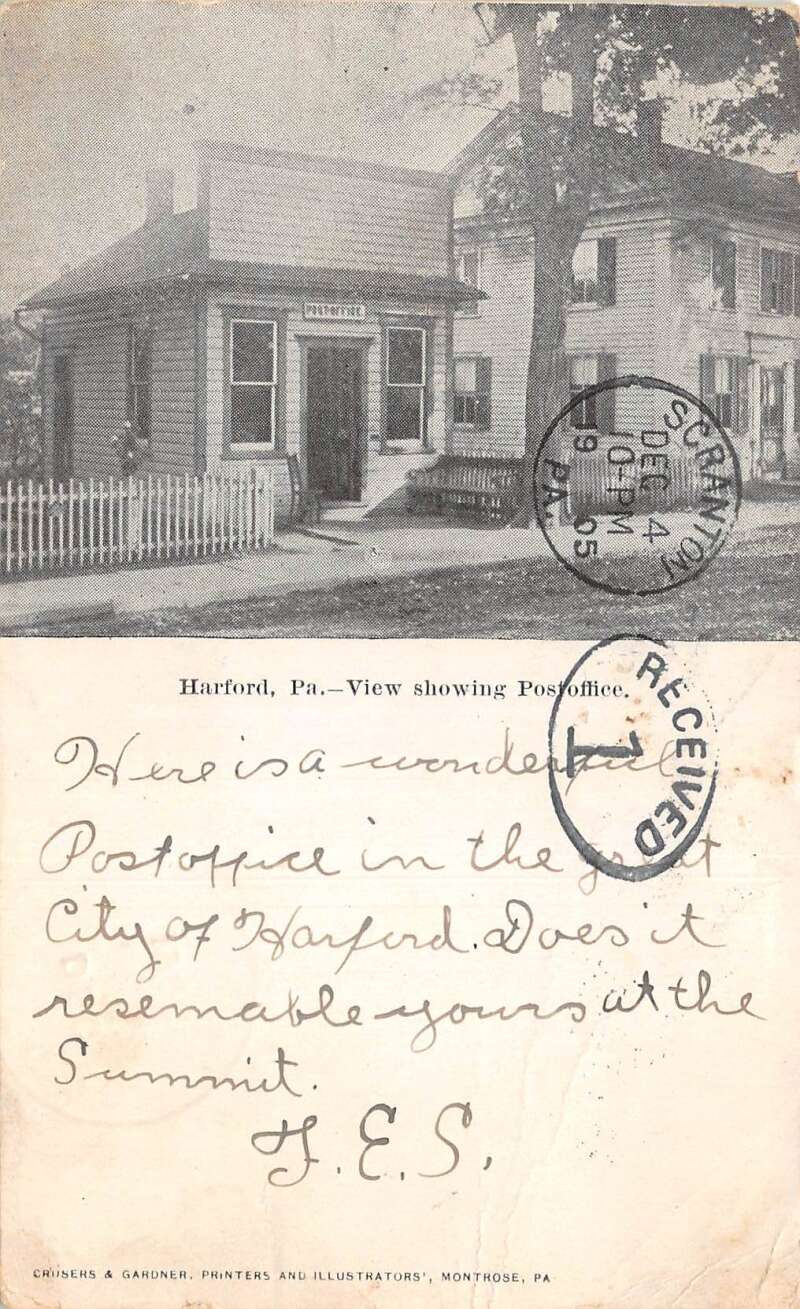 POSTOFFICE
SCRANTON
DEC 4
10-PM
19 05
PA.
Harford, Pa.—View showing Postoffice.
RECEIVED
1
Here is a wonderful
Postoffice in the great
City of Harford. Does it
resemable yours at the
Summit.
F. E. S.
CRUSERS & GARDNER, PRINTERS AND ILLUSTRATORS', MONTROSE, PA